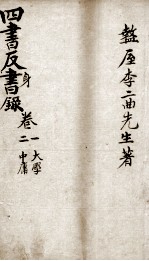 盩厔李二曲先生著
四書反書錄
身
卷
一大學
二中庸